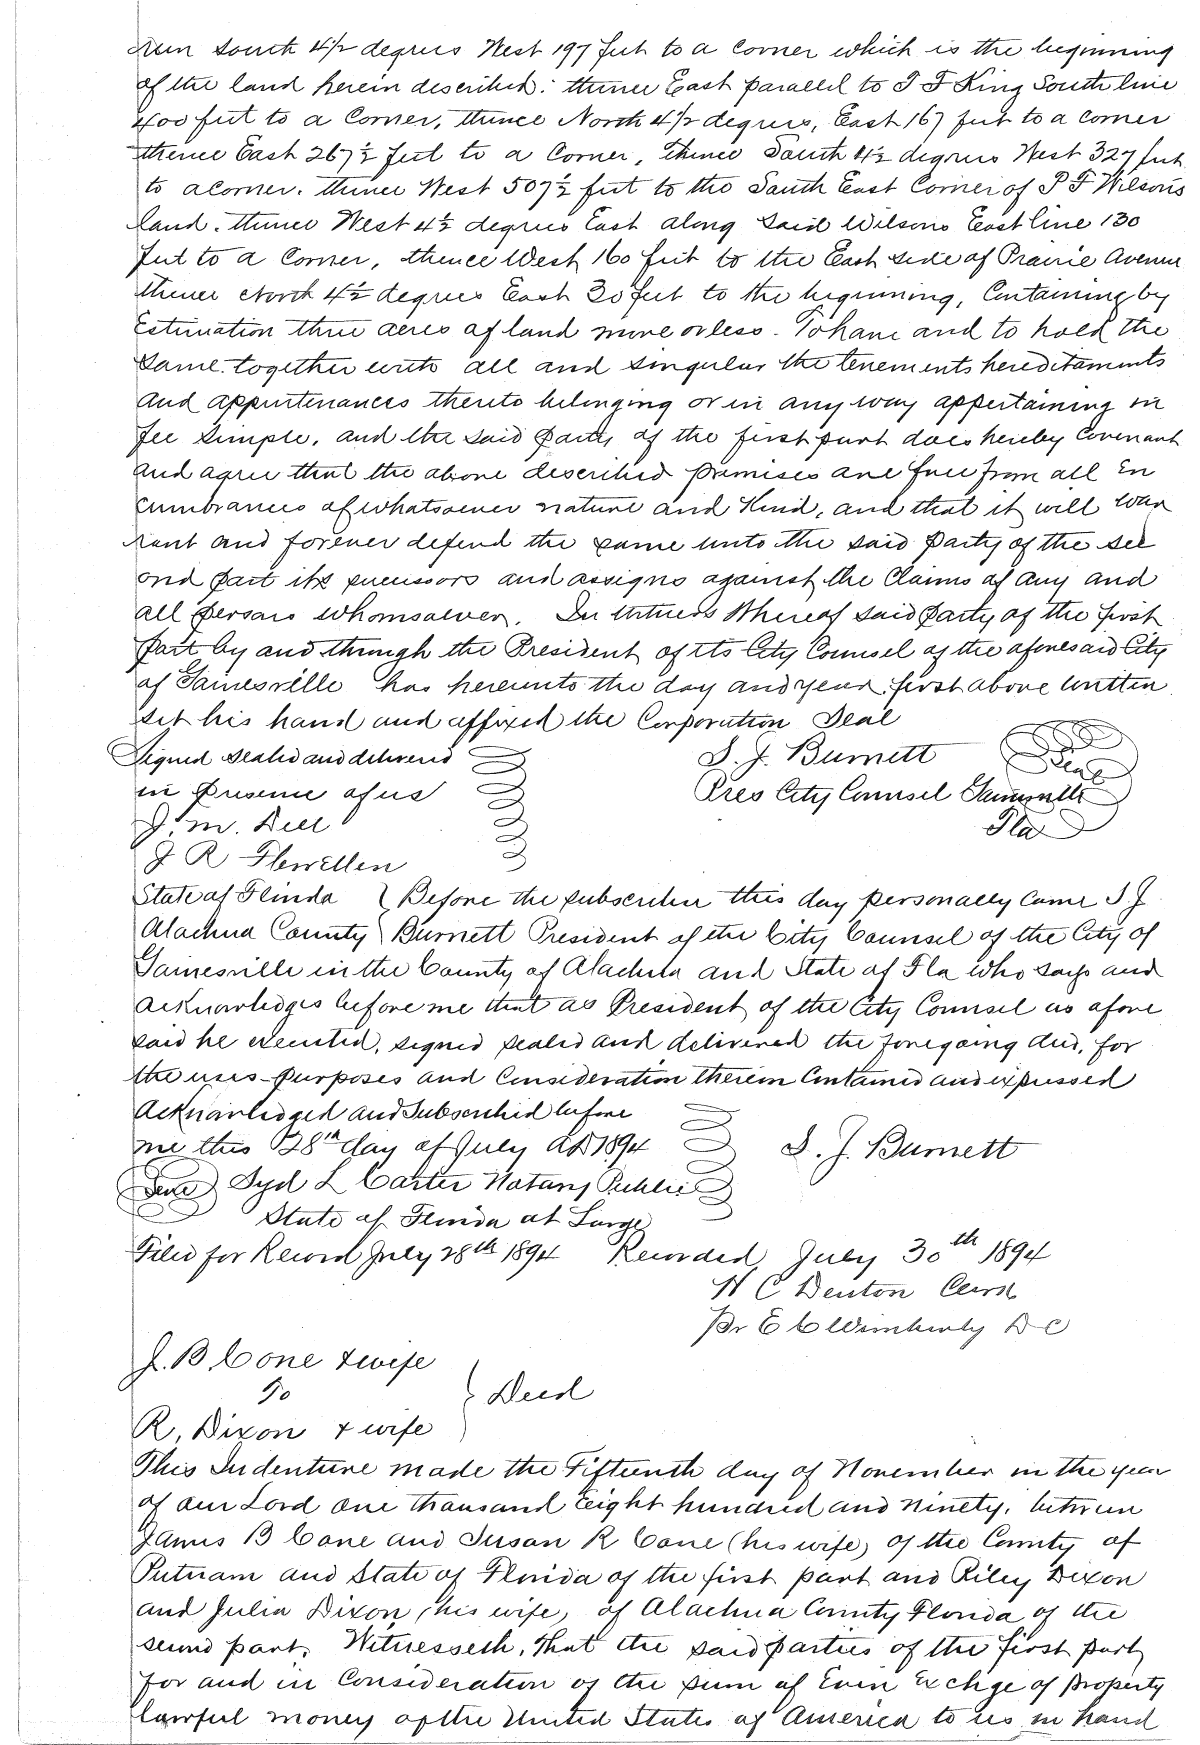 Run South 4½ degrees West 197 feet to a Corner which is the beginning
of the land herein described: thence East parallel to T F King South line
400 feet to a Corner, thence North 4½ degrees, East 167 feet to a corner
thence East 267½ feet to a Corner, thence South 4½ degrees West 327 feet
to a corner. thence West 507½ feet to the South East Corner of P F Wilsons
land. thence West 4½ degrees East along said Wilsons East line 130
feet to a Corner, thence West 160 feet to the East side of Prairie Avenue
thence North 4½ degrees East 30 feet to the beginning, Containing by
Estimation three acres of land more or less. To have and to hold the
Same together with all and singular the tenements hereditaments
and appurtenances thereto belonging or in any way appertaining in
fee simple, and the said party of the first part does hereby Covenant
and agree that the above described premises are free from all in
cumbrances of whatsoever nature and Kind, and that it will war
rant and forever defend the same unto the said party of the sec
ond part its sucessors and assigns against the Claims of any and
all persons whomsoever. In Witness Whereof said party of the first
part by and through the President of its City Counsel of the aforesaid City
of Gainesville has hereunto the day and year first above written
set his hand and affixed the Corporation Seal
Signed Sealed and delivered S. J. Burnett Seal
in presence of us Pres City Counsel Gainesville
J. M. Dell Fla
J R Flewellen
State of Florida Before the subscriber this day personally came S J
Alachua County Burnett President of the City Counsel of the City of
Gainesville in the County of Alachua and State of Fla who says and
acknowledges before me that as President of the City Counsel as afore
said he executed, signed sealed and delivered the foregoing deed, for
the uses purposes and Consideration therein Contained and expressed
Acknowledged and Subscribed before
me this 28th day of July AD 1894 S. J. Burnett
Seal Syd L Carter Notary Public
State of Florida at Large
Filed for Record July 28th 1894 Recorded July 30th 1894
H C Denton Clerk
Pr E C Wimberly D C
J. B. Cone & wife
To Deed
R. Dixon & wife
This Indenture made the Fifteenth day of November in the year
of our Lord one thousand Eight hundred and ninety, between
James B Cone and Susan R Cone (his wife) of the County of
Putnam and State of Florida of the first part and Riley Dixon
and Julia Dixon, his wife, of Alachua County Florida of the
second part. Witnesseth, That the said parties of the first part
for and in Consideration of the sum of Even Exchge of property
lawful money of the United States of America to us in hand